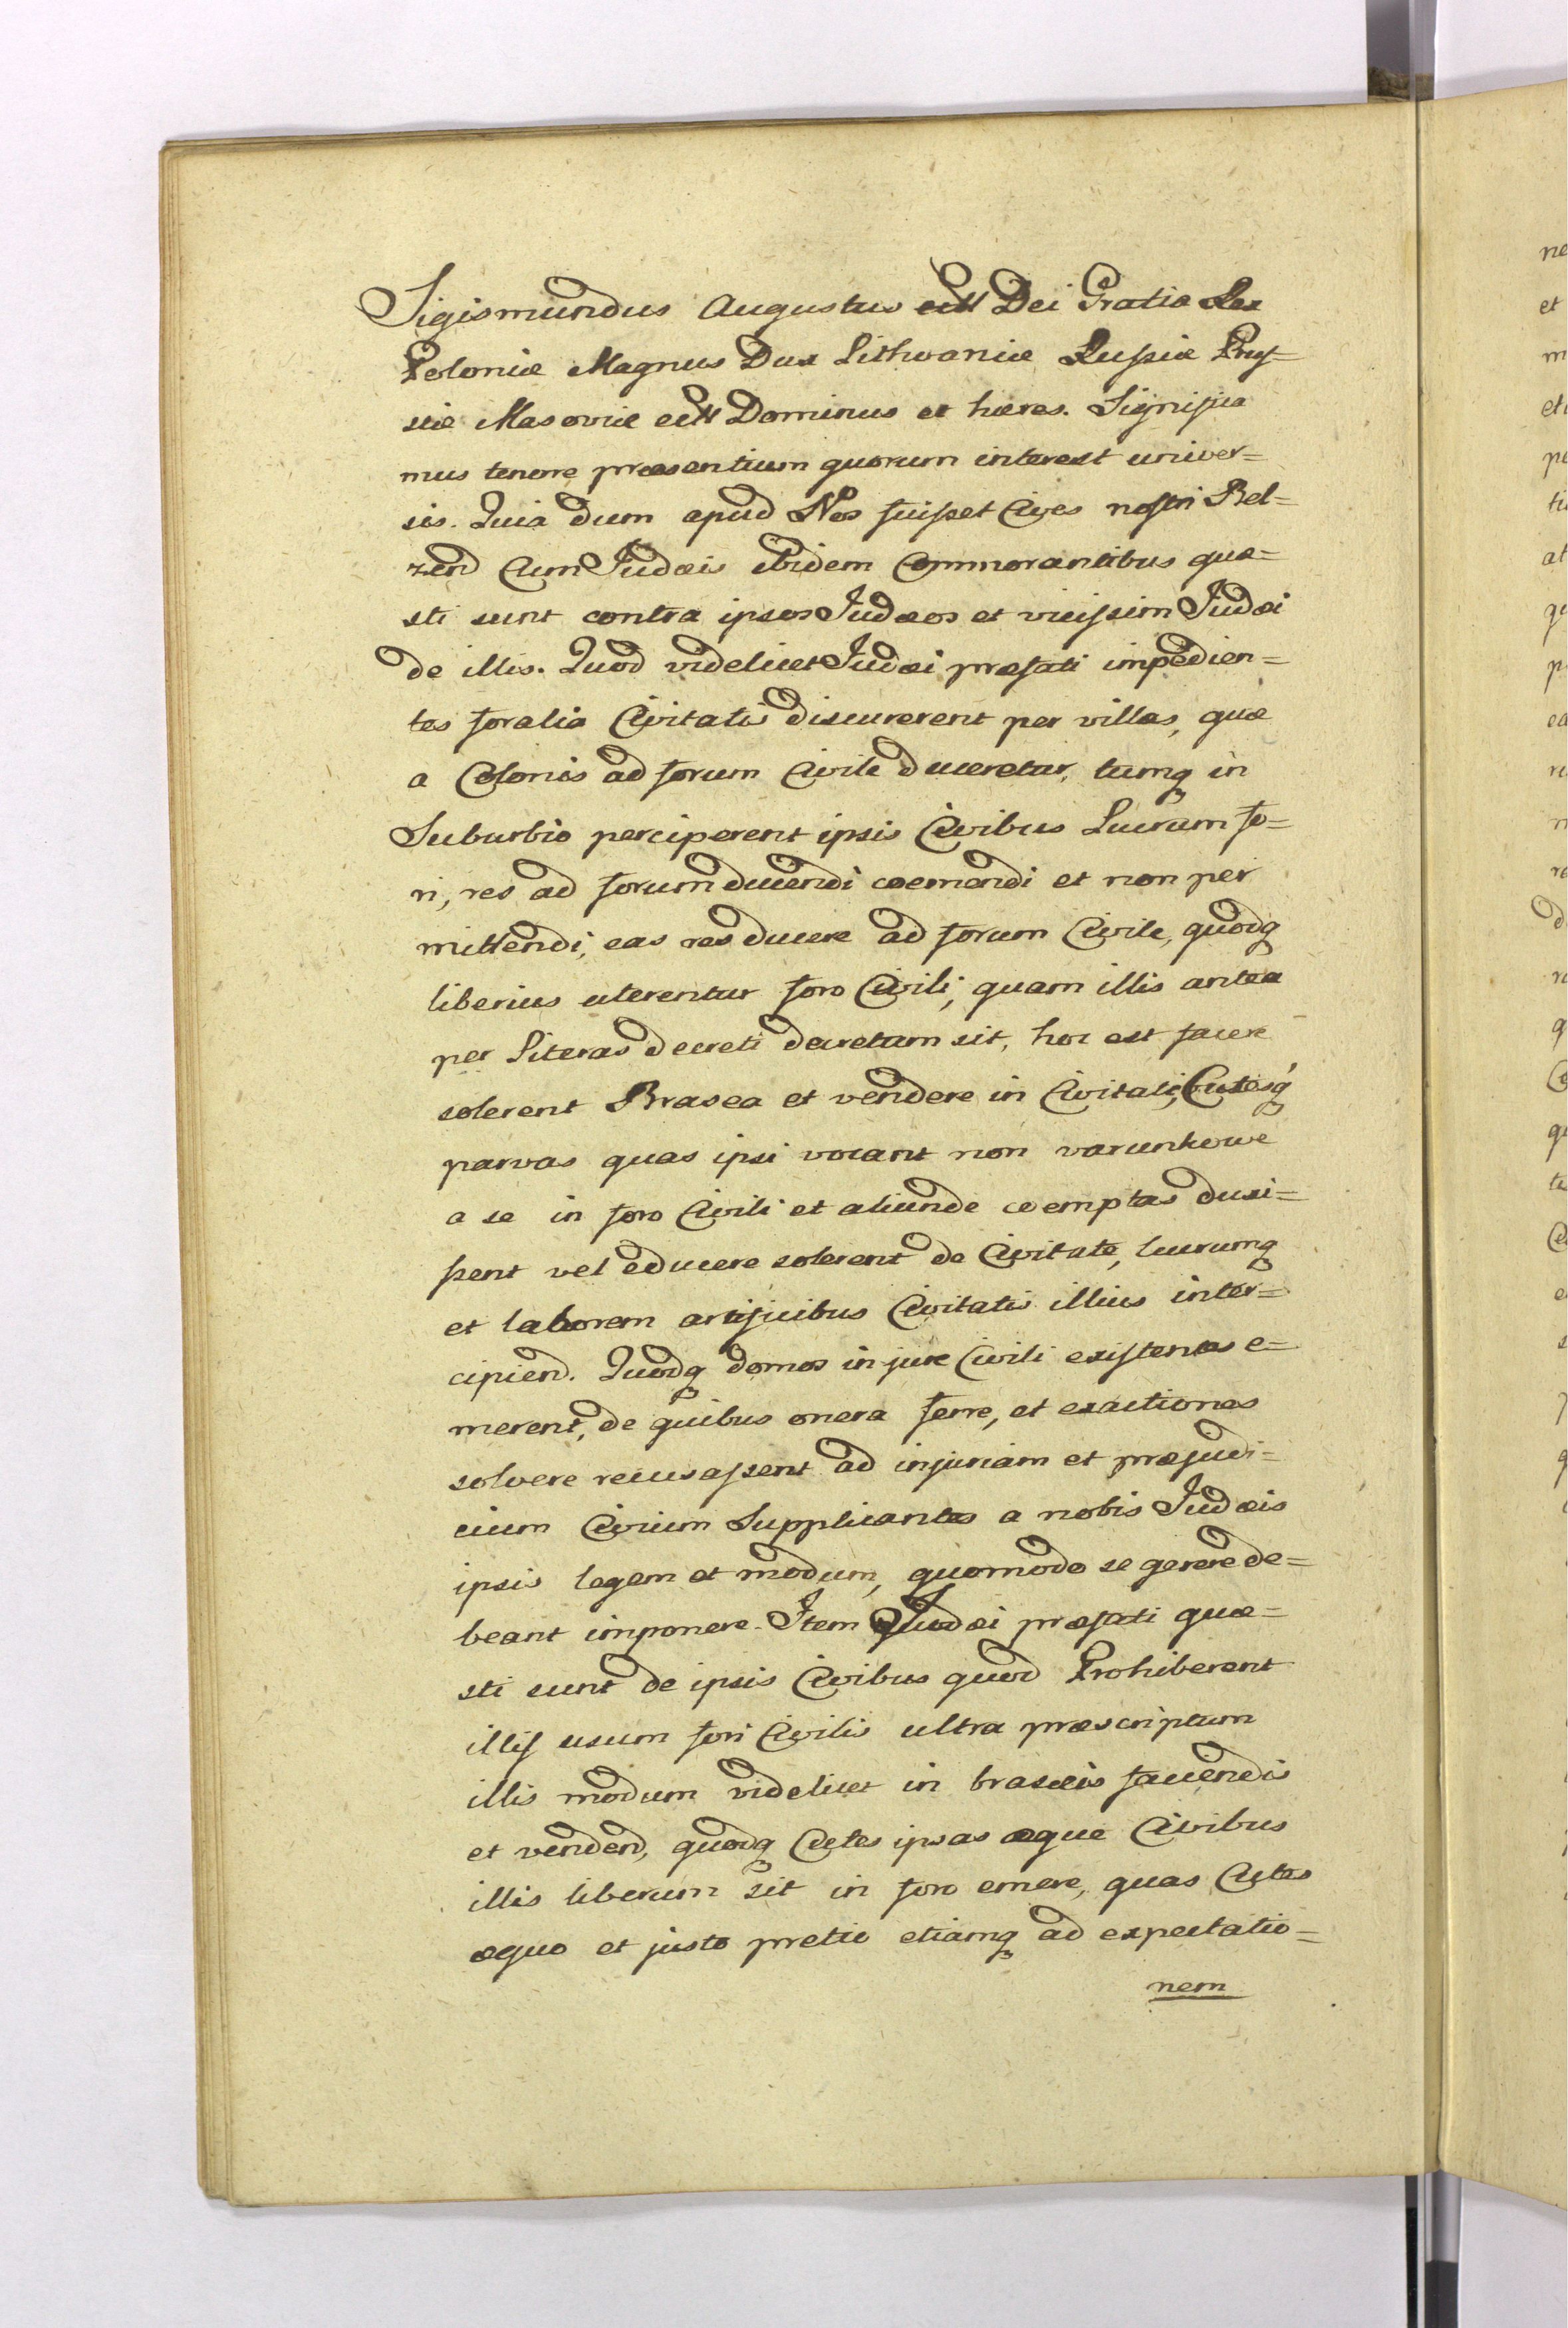 Sigismundus Augustus ectt Dei Gratia Rex
Poloniæ Magnus Dux Lithwaniæ Russiæ Prus=
siæ Masoviæ ectt Dominus et hæres. Significa
mus tenore præsentium quorum interest univer=
sis. Quia dum apud Nos fuisset Cives nostri Bel=
zend Cum Judæis ibidem Commorantibus quæ=
sti sunt contra ipsos Judæos et vicissim Judæi
de illis. Quod videlicet Judæi præfati impedien=
tes foralia Civitatis discurerent per villas, quæ
a Colonis ad forum Civile duceretur, tumq in
Suburbio perciperent ipsis Civibus Lucrum fo=
ri, res ad forum ducendi coemendi et non per
mittendi, eas res ducere ad forum Civile, quodq
liberius uterentur foro Civili, quam illis antea
per Literas decreti decretum sit, hoc est facere
solerent Brasea et vendere in Civitate, Cutesq
parvas quas ipsi vocant non varunkowe
a se in foro Civili et aliunde coemptas duxi=
ssent vel educere solerent de Civitate, lucrumq
et laborem artificibus Civitatis illius inter=
cipiend. Quodq domos in jure Civili existentes e=
merent, de quibus onera ferre, et exactiones
solvere recusassent ad injuriam et præjudi=
cium Civium Supplicantes a nobis Judæis
ipsis legem et modum, quomodo se gerere de=
beant imponere. Item Judæi præfati quæ=
sti sunt de ipsis Civibus quod Prohiberent
illis usum fori Civilis ultra præscriptum
illis modum videlicet in braseis faciendis
et vendend, quodq Cutes ipsas æque Civibus
illis liberum sit in foro emere, quas Cutes
æquo et justo pretio etiamq ad expectatio=
nem